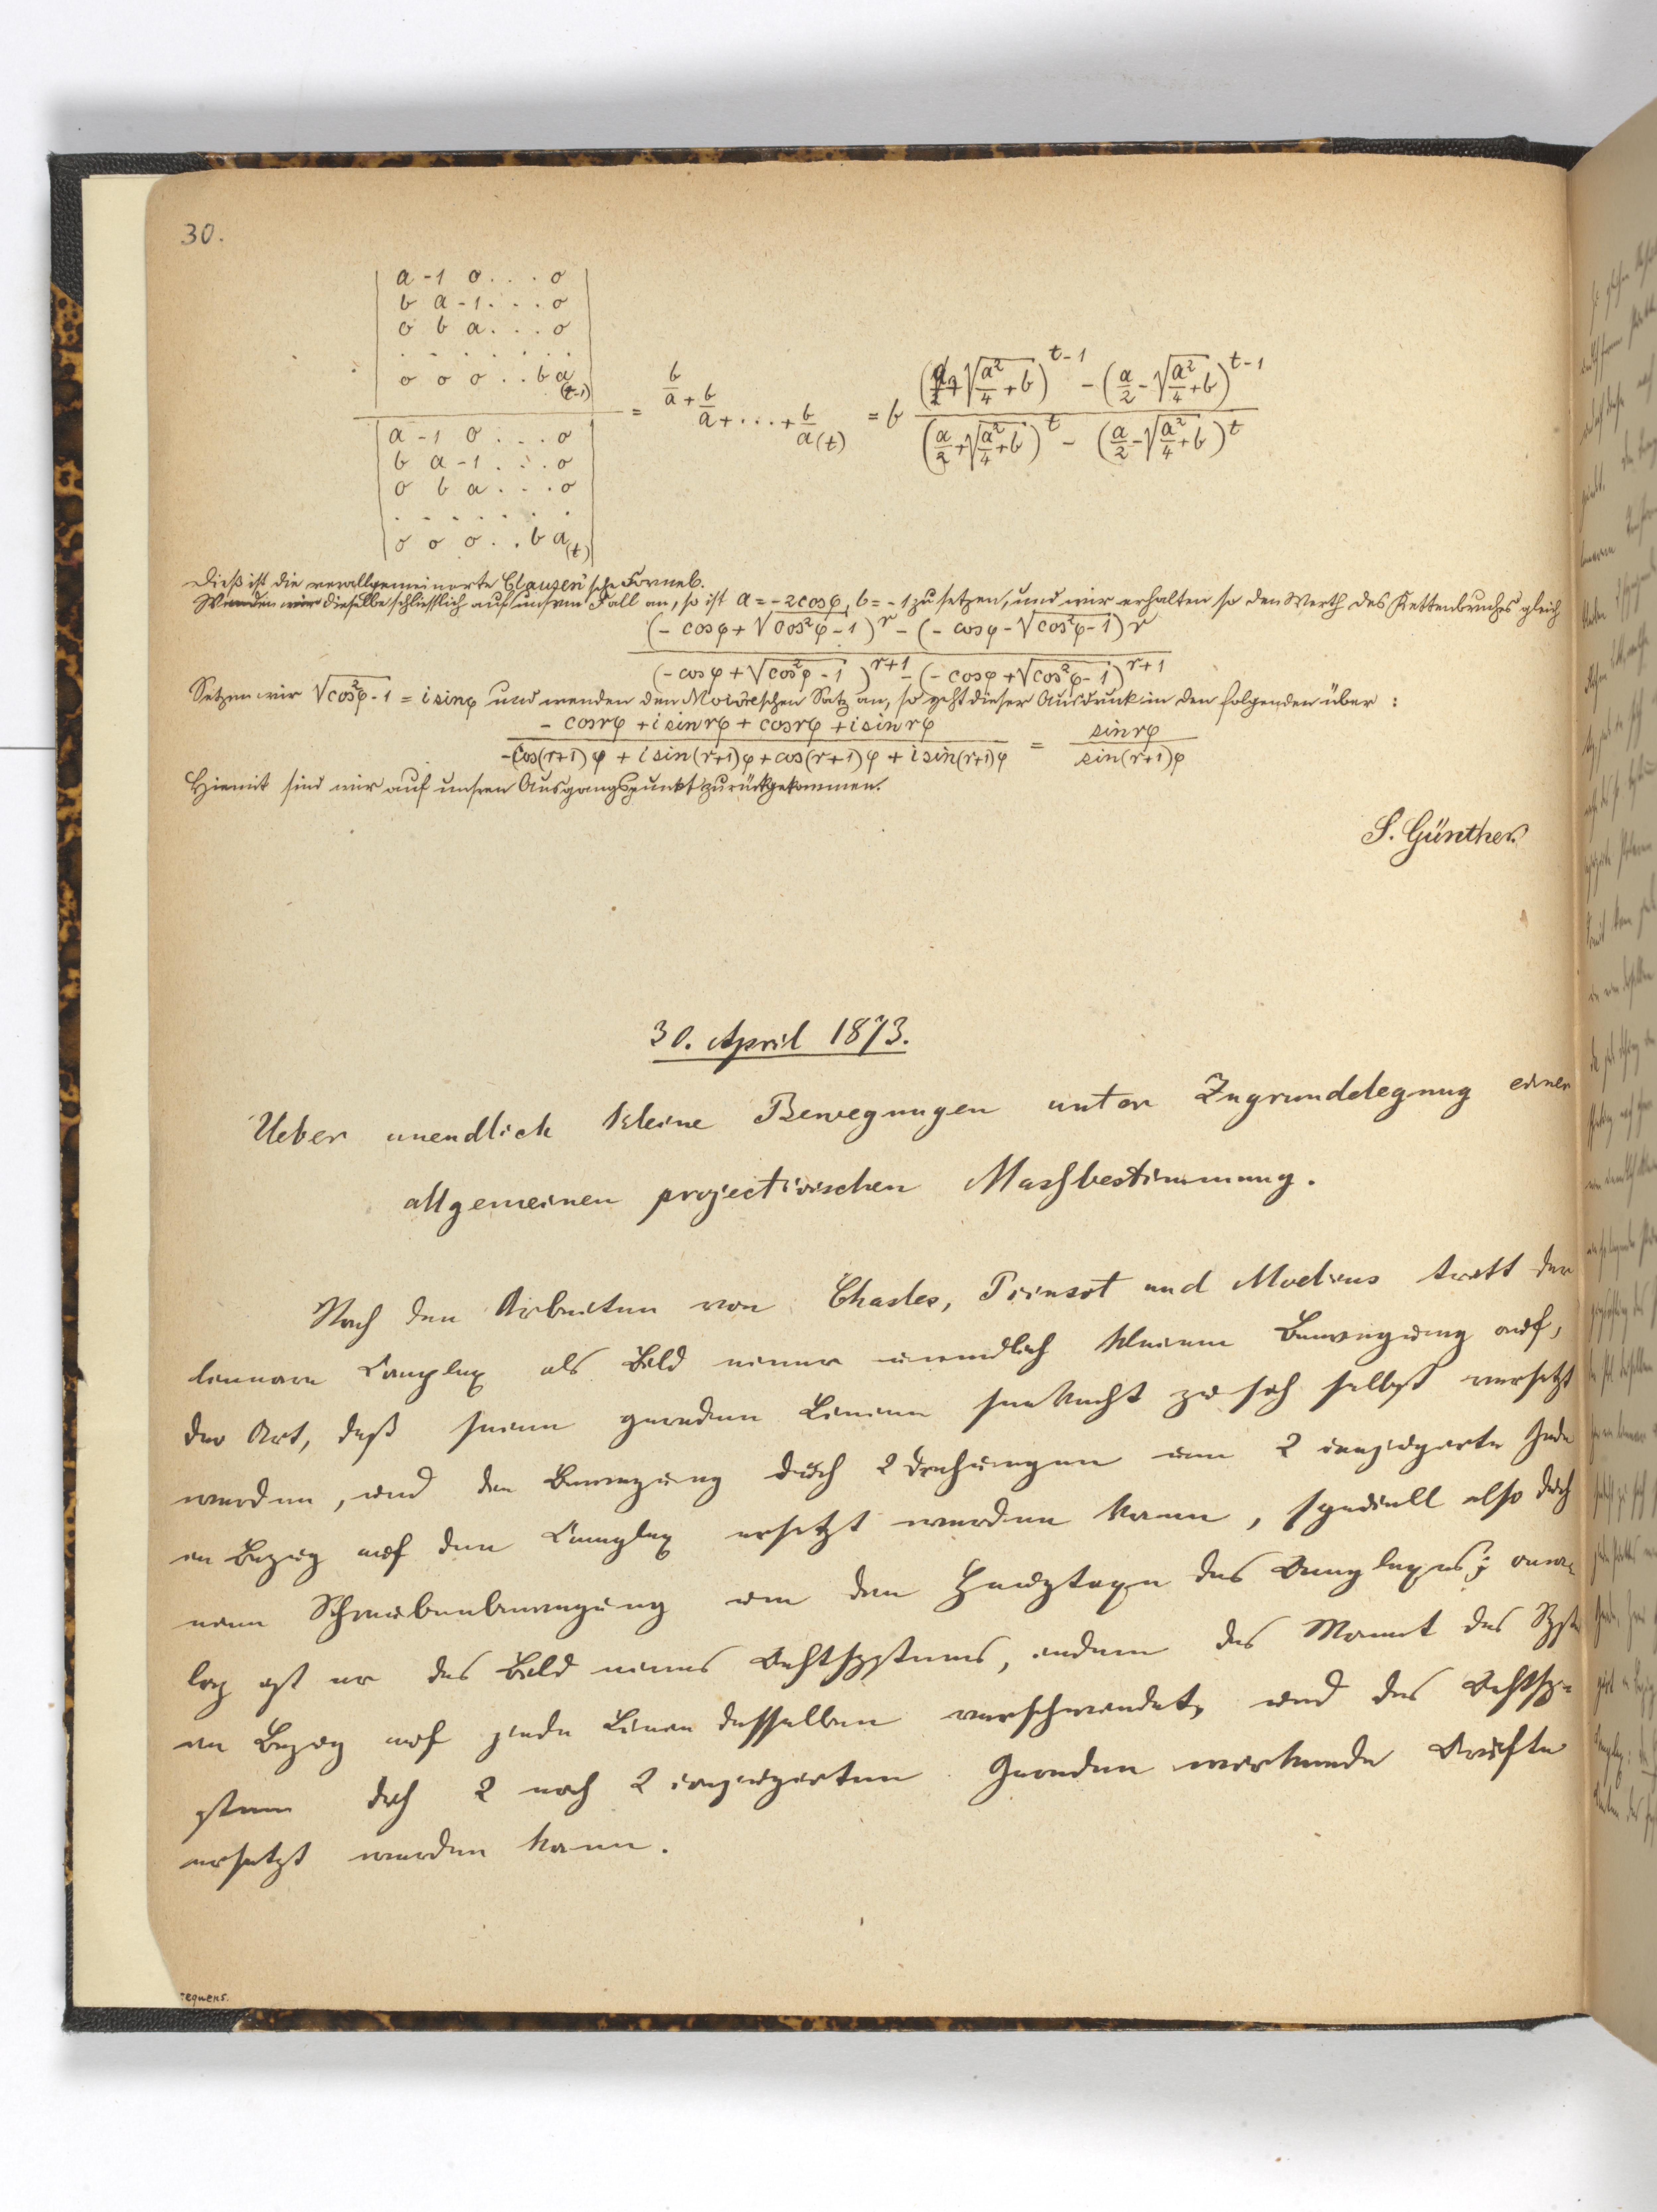 30.
a -1 0 . . . 0
b a -1 . . . 0
0 b a . . . 0
. . . . . . .
0 0 0 . . b a (t-1)
= b/a + b/a + . . . + b/a (t) = b ((a/2 + √(a²/4 + b))^(t-1) - (a/2 - √(a²/4 + b))^(t-1)) / ((a/2 + √(a²/4 + b))^t - (a/2 - √(a²/4 + b))^t)
a -1 0 . . . 0
b a -1 . . . 0
0 b a . . . 0
. . . . . . .
0 0 0 . . b a (t)
Dieß ist die verallgemeinerte Clausen'sche Formel.
Wenden wir dieselbe schliesslich auf unsren Fall an, so ist a = -2cosφ, b = -1 zu setzen, und wir erhalten so den Werth des Kettenbruches gleich
(- cosφ + √(cos²φ - 1))^r - (- cosφ - √(cos²φ - 1))^r
(- cosφ + √(cos²φ - 1))^(r+1) - (- cosφ + √(cos²φ - 1))^(r+1)
Setzen wir √(cos²φ - 1) = i sinφ und wenden den Moivreschen Satz an, so geht dieser Ausdruck in den folgenden über :
- cosrφ + i sinrφ + cosrφ + i sinrφ
-cos(r+1)φ + i sin(r+1)φ + cos(r+1)φ + i sin(r+1)φ = sinrφ / sin(r+1)φ
Hiemit sind wir auf unsren Ausgangspunkt zurückgekommen.
S. Günther.
30. April 1873.
Ueber unendlich kleine Bewegungen unter Zugrundelegung einer
allgemeinen projectivischen Massbestimmung.
Nach den Arbeiten von Chasles, Poinsot und Moebius tritt der
lineare Complex als Bild einer unendlich kleinen Bewegung auf,
der Art, daß seine geraden Linien senkrecht zu sich selbst versetzt
werden, und die Bewegung durch 2 Drehungen um 2 conjugirte Gerade
in Bezug auf den Complex ersetzt werden kann, speciell also durch
eine Schraubenbewegung um die Hauptaxe des Complexes; ana-
log ist er das Bild eines Kraftsystems, indem das Moment des Systems
in Bezug auf jede Linie desselben verschwindet, und das Kraftsy-
stem durch 2 nach 2 conjugirten Geraden wirkende Kräfte
ersetzt werden kann.